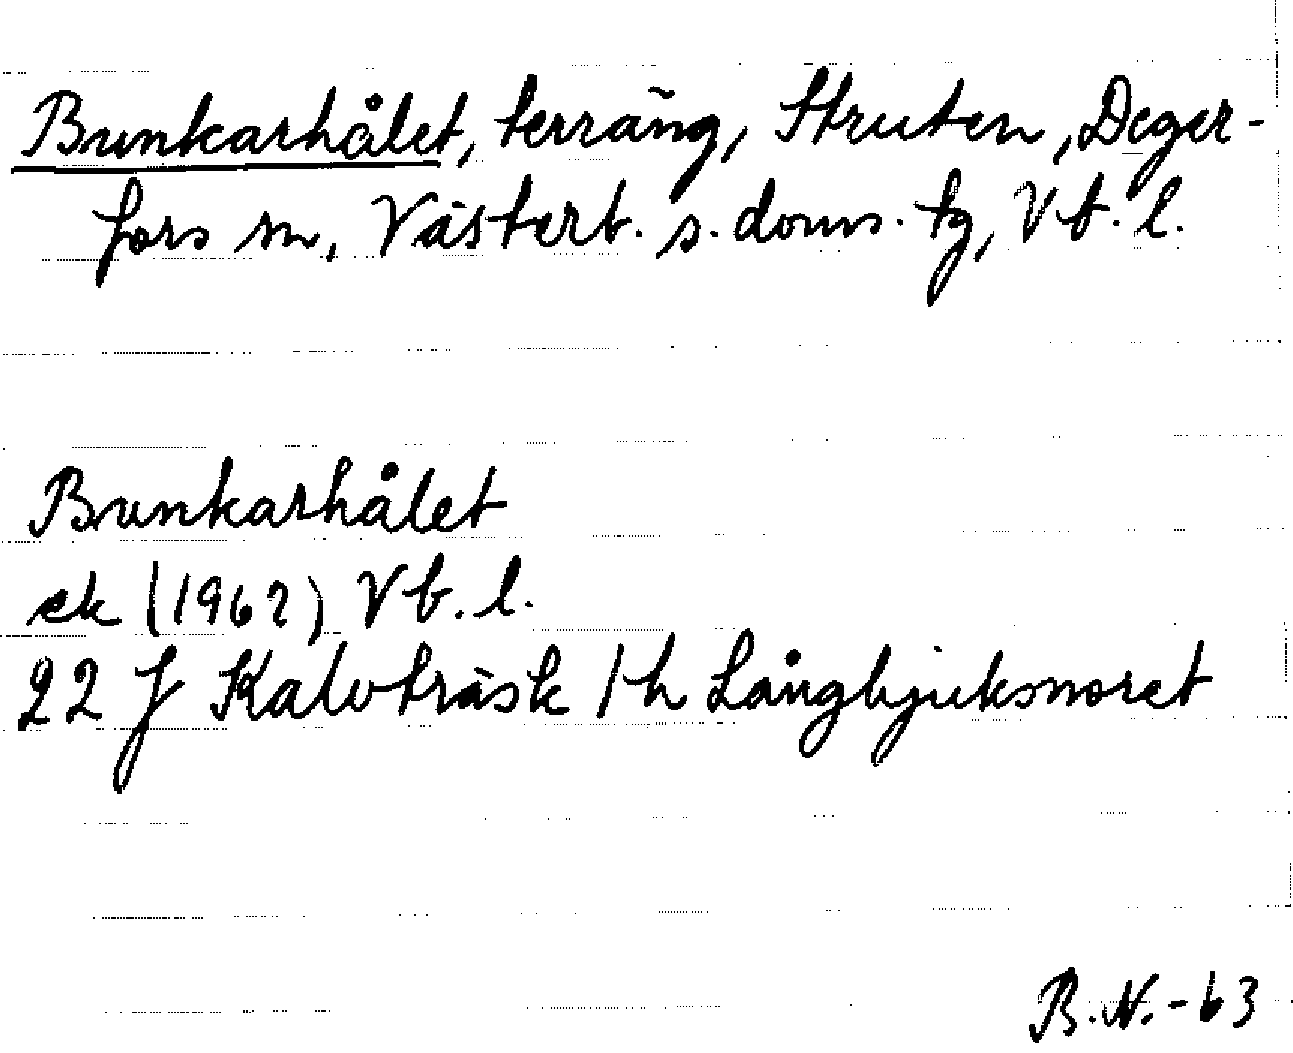 Bunkarhålet, terräng, Struten, Deger-
fors sn, Västerb. s. doms. tg, Vb. l.
Bunkarhålet
ek (1962) Vb. l.
22 J Kalvträsk 1h Långbjuksnoret
B.N.-63